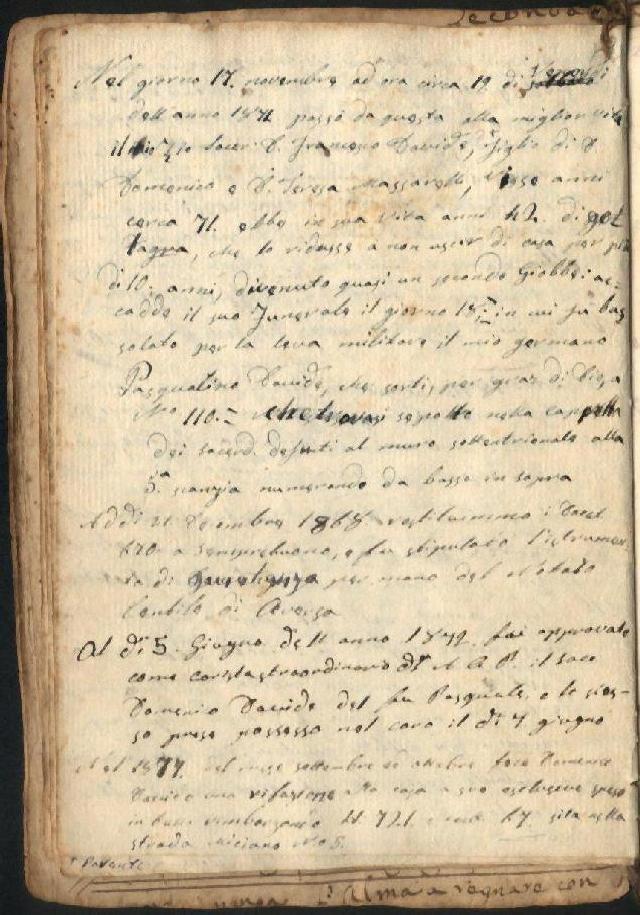 Seconda
Nel giorno 17. novembre ad ora circa 19. di Venerdì
dell'anno 1871 passò da questa alla miglior vita
il mio Zio Sacer: D. Francesco Davide, figlio di D.
Domenico e D. Teresa Massarelli, visse anni
cerca 71. ebbe in sua vita anni 42. di got
tagra, che lo ridusse a non uscir di casa per più
di 10: anni, divenuto quasi un secondo Giobbe: ac-
cadde il suo Funerale il giorno 18: in cui fu bus
solato per la leva militare il mio germano
Pasqualino Davide, che sortì, per graz. di Dio, a
No 110.= che trovasi sepolto nella cappella
dei sacerd. defunti al muro settentrionale alla
5.a scanzia numerando da basso in sopra
Addì 21 Decembre 1868 restituimmo i Ducat
670 a Semprebuono, e fu stipulato l'istrumen-
to di Quietanza per mano del Notaio
Gentile di Aversa
Al dì 5. Giugno dell anno 1879 fui approvato
come corista straordinario di A. G. P. il Sace
Domenico Davide del fu Pasquale, e lo stes-
so prese possesso nel coro il dì 7 giugno
Nel 1877 del mese settembre ed ottobre fece Domenico
Davide una rifazione alla casa a sue esclusive spese
in tutto 721. 67. sita nella
strada Miciano No 5.
Alma a regnare con